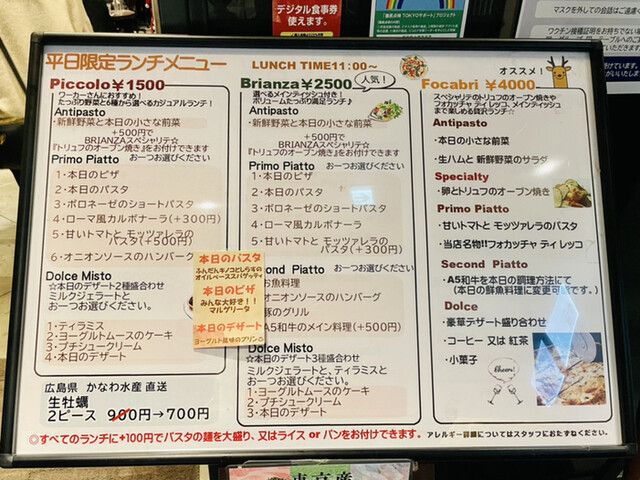 デジタル食事券
使えます。
平日限定ランチメニュー
LUNCH TIME11:00~
Piccolo¥1500
ワーカーさんにおすすめ！
たっぷり野菜と6種から選べるカジュアルランチ！
Antipasto
・新鮮野菜と本日の小さな前菜
+500円で
BRIANZAスペシャリテ☆
『トリュフのオーブン焼き』をお付けできます
Primo Piatto おーつお選びください
1・本日のピザ
2・本日のパスタ
3・ボロネーゼのショートパスタ
4・ローマ風カルボナーラ(+300円)
5・甘いトマトと モッツァレラの
パスタ(+500円)
6・オニオンソースのハンバーグ
Dolce Misto
☆本日のデザート2種盛合わせ
ミルクジェラートと
おーつお選びください。
1・ティラミス
2・ヨーグルトムースのケーキ
3・プチシュークリーム
4・本日のデザート
広島県 かなわ水産 直送
生牡蠣
2ピース 900円→700円
Brianza¥2500
人気！
選べるメインディッシュ付き！
ボリュームたっぷり満足ランチ♪
Antipasto
・新鮮野菜と本日の小さな前菜
+500円で
BRIANZAスペシャリテ☆
『トリュフのオーブン焼き』をお付けできます
Primo Piatto おーつお選びください
1・本日のピザ
2・本日のパスタ
3・ボロネーゼのショートパスタ
4・ローマ風カルボナーラ
5・甘いトマトと モッツァレラの
パスタ(+300円)
cond Piatto おーつお選びください
お魚料理
オニオンソースのハンバーグ
豚のグリル
A5和牛のメイン料理(+500円)
Dolce Misto
☆本日のデザート3種盛合わせ
ミルクジェラートと、ティラミスと
おーつお選びください。
1・ヨーグルトムースのケーキ
2・プチシュークリーム
3・本日のデザート
本日のパスタ
ふんだんキノコとしらすの
オイルベーススパゲッティ
本日のピザ
みんな大好き！！
マルゲリータ
本日のデザート
ヨーグルト風味のプリン
オススメ！
Focabri ¥4000
スペシャリテのトリュフのオーブン焼きや
フォカッチャ ディ レッコ、メインディッシュ
まで楽しめる贅沢ランチ☆
Antipasto
・本日の小さな前菜
・生ハムと 新鮮野菜のサラダ
Specialty
・卵とトリュフのオーブン焼き
Primo Piatto
・甘いトマトと モッツァレラのパスタ
・当店名物!!フォカッチャ ディ レッコ
Second Piatto
・A5和牛を本日の調理方法にて
(本日の鮮魚料理に変更可能です。)
Dolce
・豪華デザート盛り合わせ
・コーヒー 又は 紅茶
・小菓子
Cheers!
◎すべてのランチに+100円でパスタの麺を大盛り、又はライス or パンをお付けできます。 アレルギー詳細についてはスタッフにおたずねください。